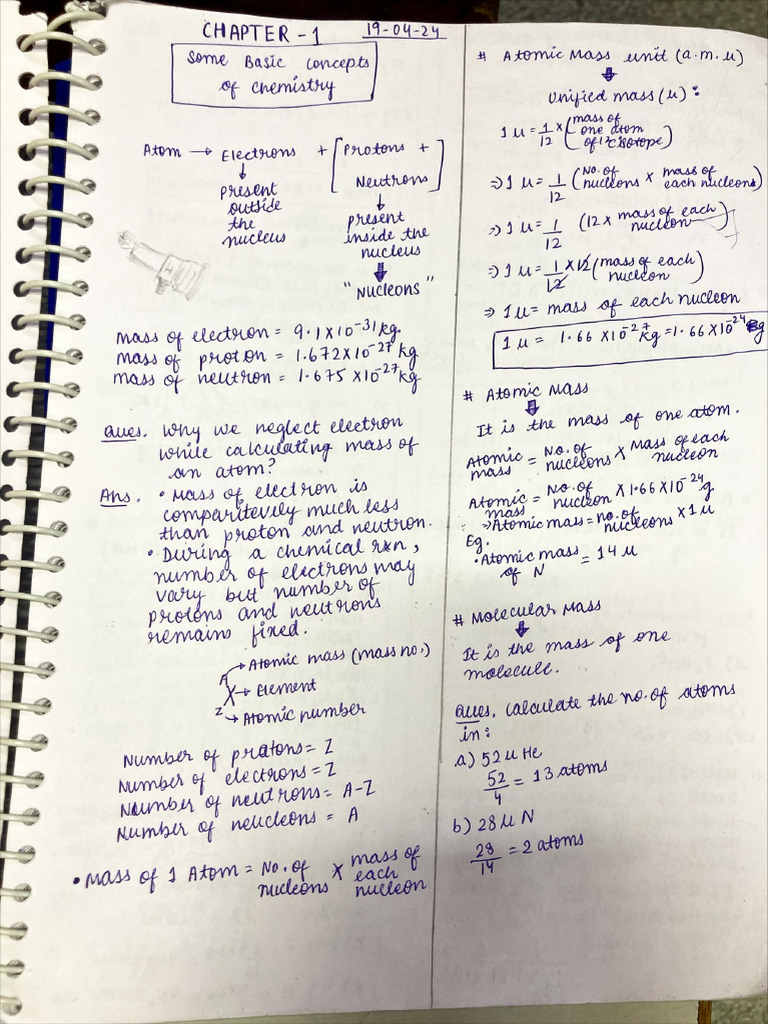 CHAPTER - 1
19-04-24
Some Basic concepts
of chemistry
Atom → Electrons + [Protons +
Neutrons]
↓
present
outside
the
nucleus
↓
present
inside the
nucleus
⇓
"Nucleons"
Mass of electron = 9.1x10⁻³¹ kg.
Mass of proton = 1.672x10⁻²⁷ kg
Mass of neutron = 1.675 x10⁻²⁷ kg
Ques. Why we neglect electron
while calculating mass of
an atom?
Ans. • Mass of electron is
comparitevely much less
than proton and neutron.
• During a chemical rxn,
number of electrons may
vary but number of
protons and neutrons
remains fixed.
A → Atomic mass (mass no.)
X → Element
Z → Atomic number
Number of protons = Z
Number of electrons = Z
Number of neutrons = A-Z
Number of neucleons = A
• Mass of 1 Atom = No. of nucleons x mass of each nucleon
# Atomic Mass unit (a.m.u)
⇓
Unified mass (u) :
1 u = 1/12 x (mass of one atom of 12c isotope)
⇒ 1 u = 1/12 (No. of nucleons x mass of each nucleons)
⇒ 1 u = 1/12 (12 x mass of each nucleon)
⇒ 1 u = 1/12 x 12 (mass of each nucleon)
⇒ 1 u = mass of each nucleon
1 u = 1.66 x10⁻²⁷ kg = 1.66 x10⁻²⁴ g
# Atomic Mass
⇓
It is the mass of one atom.
Atomic mass = No. of nucleons x Mass of each nucleon
Atomic mass = No. of nucleon x 1.66 x10⁻²⁴ g
⇒ Atomic mass = no. of nucleons x 1 u
Eg.
• Atomic mass of N = 14 u
# Molecular Mass
⇓
It is the mass of one
molecule.
Ques. calculate the no. of atoms
in :
a) 52 u He
52/4 = 13 atoms
b) 28 u N
28/14 = 2 atoms